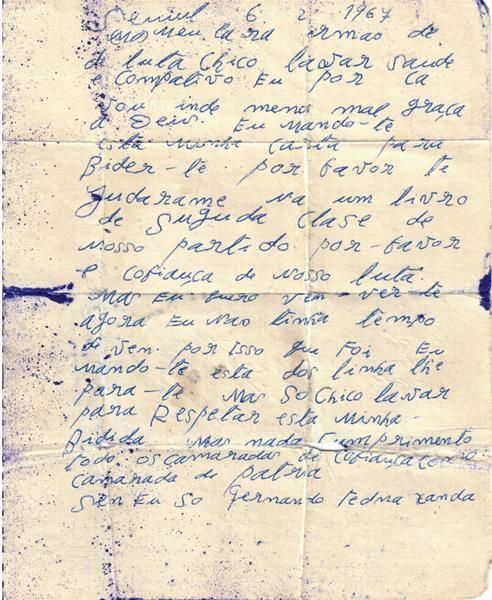 6 2 1967
Meu cara irmao de
de luta Chico lavar Saude
Compativo Eu por ca
vou indo menos mal graça
a Deus. Eu Mando-te
esta Minha Carta para
Bider-te por favor te
Judarame na um livro
de Sugunda Clase de
Nosso partido por-favor
e Cofiança de Nosso luta.
Mas Eu vem-ver-te
agora Eu Nao tinha tempo
de ven. por Isso qu Foi Eu
Mando-te esta dos linha lhe
para-te Mas So Chico lavar
para Respetar esta Minha-
Bidida Mas nada Cumprimento
todo os camaradas de Cofiança como
Camarada de patria
Sien Eu So Fernando